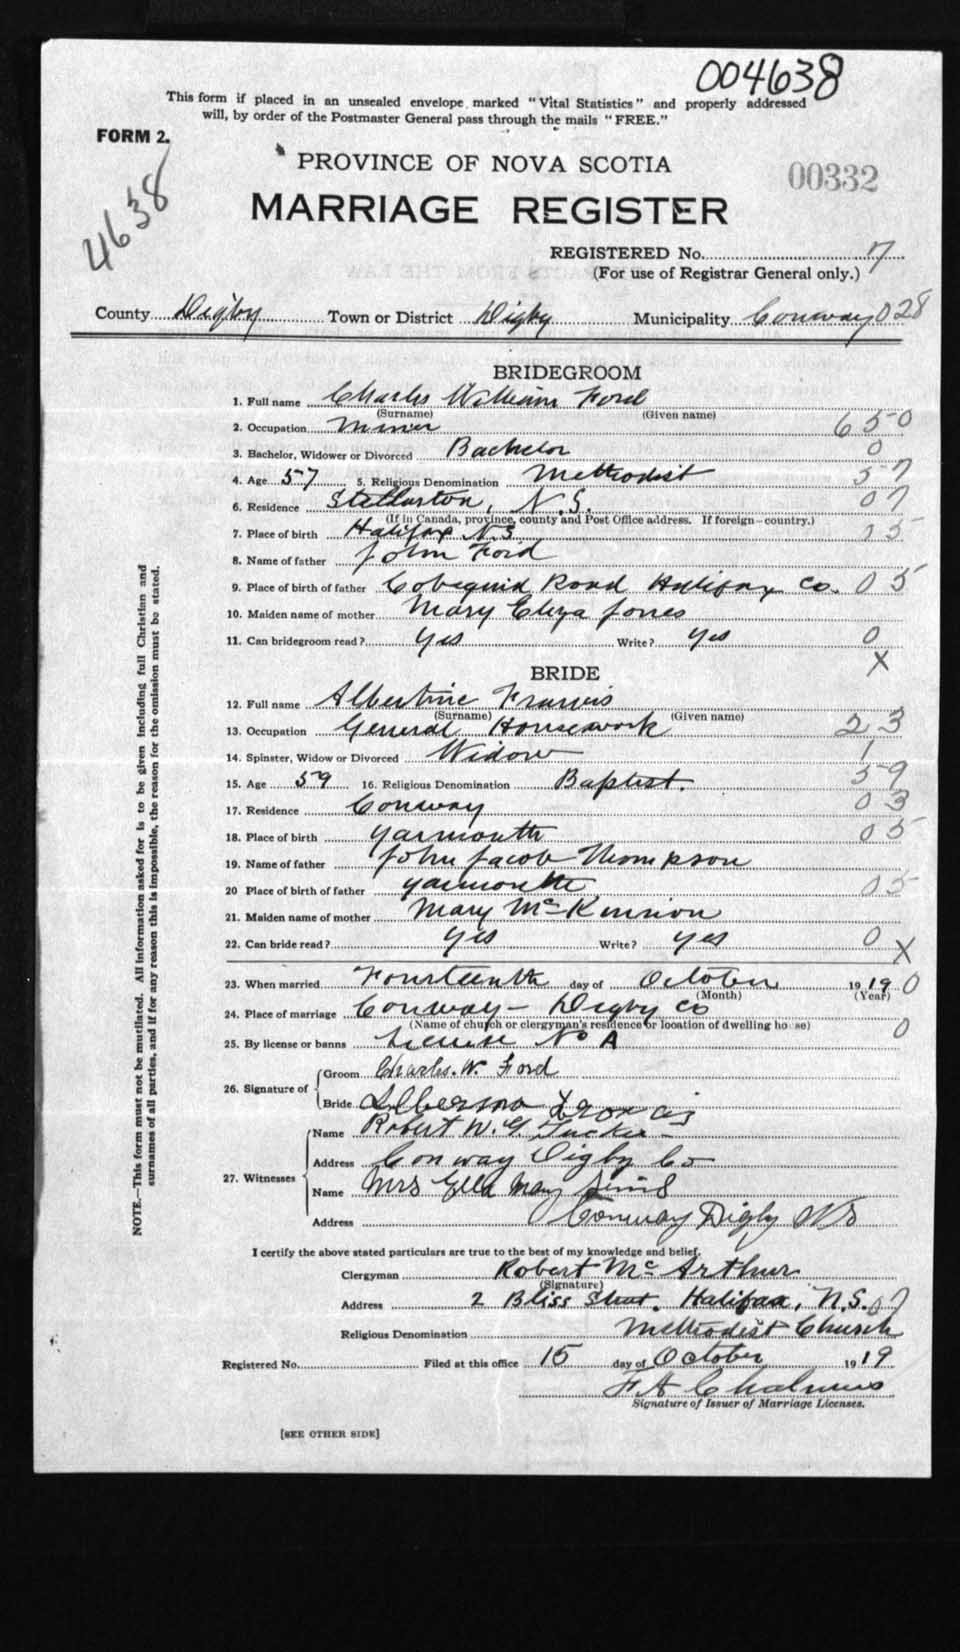 004638
This form if placed in an unsealed envelope marked "Vital Statistics" and properly addressed
will, by order of the Postmaster General pass through the mails "FREE."
FORM 2.
4638
PROVINCE OF NOVA SCOTIA
00332
MARRIAGE REGISTER
REGISTERED No. 7
(For use of Registrar General only.)
County Digby Town or District Digby Municipality Conway 028
BRIDEGROOM
1. Full name Charles William Ford
(Surname) (Given name)
2. Occupation Miner 650
3. Bachelor, Widower or Divorced Bachelor 0
4. Age 57 5. Religious Denomination Methodist 57
6. Residence Stellarton, N.S. 07
(If in Canada, province, county and Post Office address. If foreign—country.)
7. Place of birth Halifax N.S 05
8. Name of father John Ford
9. Place of birth of father Cobequid Road Halifax Co. 05
10. Maiden name of mother Mary Eliza Jones
11. Can bridegroom read? Yes Write? Yes 0
X
BRIDE
12. Full name Albertine Francis
(Surname) (Given name)
13. Occupation General Housework 23
14. Spinster, Widow or Divorced Widow 1
15. Age 59 16. Religious Denomination Baptist. 59
17. Residence Conway 03
18. Place of birth Yarmouth 05
19. Name of father John Jacob Thompson
20 Place of birth of father Yarmouth 05
21. Maiden name of mother Mary McKinnion
22. Can bride read? Yes Write? Yes 0 X
23. When married Fourteenth day of October 1919 0
(Month) (Year)
24. Place of marriage Conway - Digby Co
(Name of church or clergyman's residence or location of dwelling house) 0
25. By license or banns License No A
26. Signature of Groom Charles. W. Ford
Bride Francis
27. Witnesses
Name Robert W. G. Tucker
Address Conway Digby Co
Name Mrs Ella May Sims
Address Conway Digby NS
I certify the above stated particulars are true to the best of my knowledge and belief.
Clergyman Robert McArthur
(Signature)
Address 2 Bliss Street. Halifax, N.S. 07
Religious Denomination Methodist Church
Registered No. Filed at this office 15 day of October 1919
F A Chalmers
Signature of Issuer of Marriage Licenses.
[SEE OTHER SIDE]
NOTE.—This form must not be mutilated. All information asked for is to be given including full Christian and
surnames of all parties, and if for any reason this is impossible, the reason for the omission must be stated.